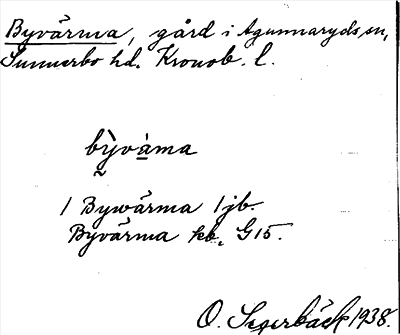 Byvärma, gård i Agunnaryds sn,
Sunnerbo hd. Kronob. l.
bỳ̖váma
1 Bywärma 1 jb.
Byvärma kb. G15.
O. Segerbäck 1938.